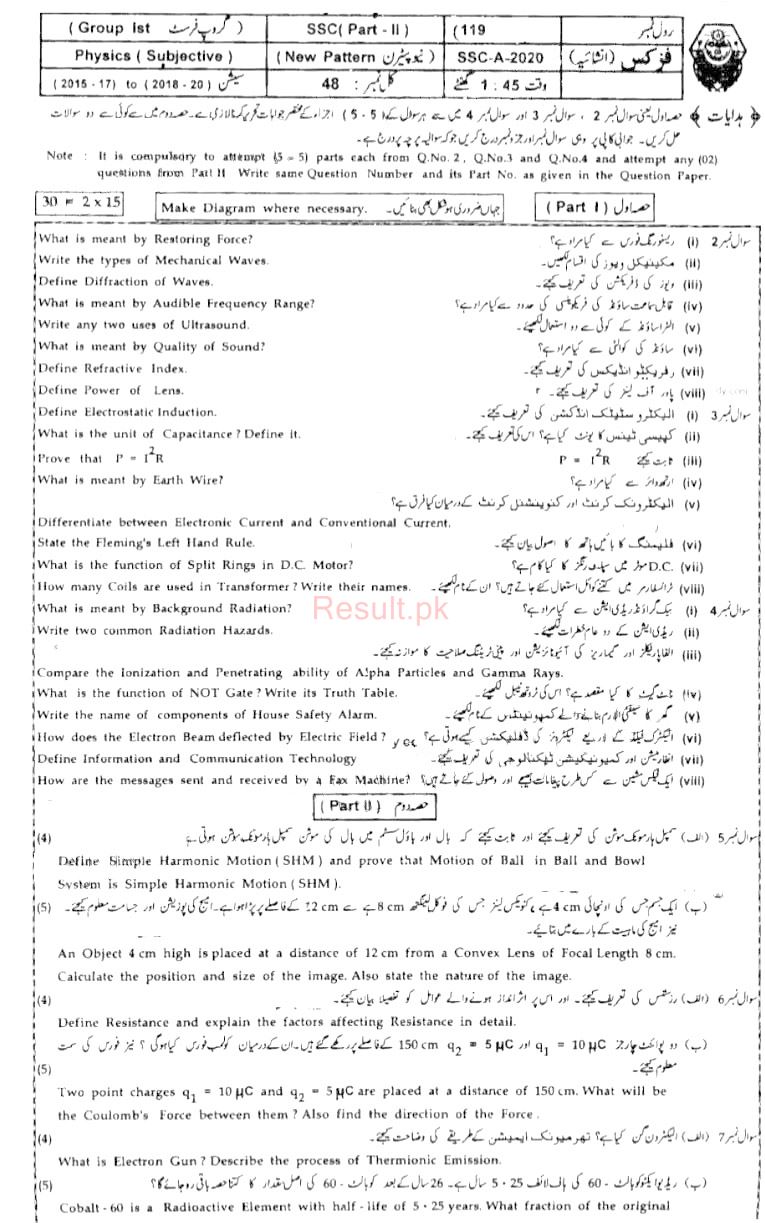 ( Group Ist گروپ فرسٹ ) SSC( Part - II ) (119 رول نمبر
Physics ( Subjective ) ( New Pattern نیو پیٹرن ) SSC-A-2020 فزکس (انشائیہ)
( 2015 - 17 ) to ( 2018 - 20 ) سیشن کل نمبر : 48 وقت 1 : 45 گھنٹے
﴿ ہدایات ﴾ حصہ اول یعنی سوال نمبر 2 ، سوال نمبر 3 اور سوال نمبر 4 میں سے ہر سوال کے ( 5 - 5 ) اجزاء کے مختصر جوابات تحریر کرنا لازمی ہے۔ حصہ دوم میں سے کوئی سے دو سوالات
حل کریں۔ جوابی کاپی پر وہی سوال نمبر اور جز نمبر درج کریں جو کہ سوالیہ پرچہ پر درج ہے۔
Note : It is compulsory to attempt (5 = 5) parts each from Q.No. 2 , Q.No.3 and Q.No.4 and attempt any (02)
questions from Part II Write same Question Number and its Part No. as given in the Question Paper.
30 = 2 x 15 Make Diagram where necessary. جہاں ضروری ہو شکل بھی بنائیں۔ ( Part I ) حصہ اول
What is meant by Restoring Force? سوال نمبر 2 (i) ریسٹورنگ فورس سے کیا مراد ہے؟
Write the types of Mechanical Waves. (ii) مکینیکل ویوز کی اقسام لکھیں۔
Define Diffraction of Waves. (iii) ویوز کی ڈفریکشن کی تعریف کیجئے۔
What is meant by Audible Frequency Range? (iv) قابل سماعت ساؤنڈ کی فریکوئنسی کی حدود سے کیا مراد ہے؟
Write any two uses of Ultrasound. (v) الٹراساؤنڈ کے کوئی سے دو استعمال لکھیئے۔
What is meant by Quality of Sound? (vi) ساؤنڈ کی کوالٹی سے کیا مراد ہے؟
Define Refractive Index. (vii) رفریکٹو انڈیکس کی تعریف کیجئے۔
Define Power of Lens. (viii) پاور آف لینز کی تعریف کیجئے۔
Define Electrostatic Induction. سوال نمبر 3 (i) الیکٹروسٹیٹک انڈکشن کی تعریف کیجئے۔
What is the unit of Capacitance ? Define it. (ii) کپیسی ٹینس کا یونٹ کیا ہے؟ اس کی تعریف کیجئے۔
Prove that P = I²R (iii) ثابت کیجئے P = I²R
What is meant by Earth Wire? (iv) ارتھ وائر سے کیا مراد ہے؟
(v) الیکٹرونک کرنٹ اور کنوینشنل کرنٹ کے درمیان کیا فرق ہے؟
Differentiate between Electronic Current and Conventional Current.
State the Fleming's Left Hand Rule. (vi) فلیمنگ کا بائیں ہاتھ کا اصول بیان کیجئے۔
What is the function of Split Rings in D.C. Motor? (vii) D.C. موٹر میں سپلٹ رنگز کا کیا کام ہے؟
How many Coils are used in Transformer ? Write their names. (viii) ٹرانسفارمر میں کتنے کوائل استعمال کئے جاتے ہیں؟ ان کے نام لکھیئے۔
What is meant by Background Radiation? سوال نمبر 4 (i) بیک گراؤنڈ ریڈی ایشن سے کیا مراد ہے؟
Result.pk
Write two common Radiation Hazards. (ii) ریڈی ایشن کے دو عام خطرات لکھیئے۔
(iii) الفا پارٹیکلز اور گیما ریز کی آئیونائزیشن اور پینی ٹریٹنگ صلاحیت کا موازنہ کیجئے۔
Compare the Ionization and Penetrating ability of Alpha Particles and Gamma Rays.
What is the function of NOT Gate ? Write its Truth Table. (iv) ناٹ گیٹ کا کیا مقصد ہے؟ اس کی ٹروتھ ٹیبل لکھیئے۔
Write the name of components of House Safety Alarm. (v) گھر کا سیفٹی الارم بنانے والے کمپونینٹس کے نام لکھیئے۔
How does the Electron Beam deflected by Electric Field ? (vi) الیکٹرک فیلڈ کے ذریعے الیکٹرونز کی ڈفلیکشن کیسے ہوتی ہے؟
Define Information and Communication Technology (vii) انفارمیشن اور کمیونیکیشن ٹیکنالوجی کی تعریف کیجئے۔
How are the messages sent and received by a Fax Machine? (viii) ایک فیکس مشین سے کس طرح پیغامات بھیجے اور وصول کئے جاتے ہیں؟
( Part II ) حصہ دوم
(4) سوال نمبر 5 (الف) سمپل ہارمونک موشن کی تعریف کیجئے اور ثابت کیجئے کہ بال اور باؤل سسٹم میں بال کی موشن سمپل ہارمونک موشن ہوتی ہے
Define Simple Harmonic Motion ( SHM ) and prove that Motion of Ball in Ball and Bowl
System is Simple Harmonic Motion ( SHM ).
(5) (ب) ایک جسم جس کی اونچائی 4 cm ہے، کنویکس لینز جس کی فوکل لینگتھ 8 cm ہے سے 12 cm کے فاصلے پر پڑا ہوا ہے۔ امیج کی پوزیشن اور جسامت معلوم کیجئے۔
نیز امیج کی ماہیت کے بارے میں بتائیے۔
An Object 4 cm high is placed at a distance of 12 cm from a Convex Lens of Focal Length 8 cm.
Calculate the position and size of the image. Also state the nature of the image.
(4) سوال نمبر 6 (الف) رزسٹنس کی تعریف کیجئے۔ اور اس پر اثر انداز ہونے والے عوامل کو تفصیلاً بیان کیجئے۔
Define Resistance and explain the factors affecting Resistance in detail.
(ب) دو پوائنٹ چارجز q₁ = 10 µC اور q₂ = 5 µC 150 cm کے فاصلے پر رکھے گئے ہیں۔ ان کے درمیان کولمب فورس کیا ہوگی ؟ نیز فورس کی سمت
(5) معلوم کیجئے۔
Two point charges q₁ = 10 µC and q₂ = 5 µC are placed at a distance of 150 cm. What will be
the Coulomb's Force between them ? Also find the direction of the Force .
(4) سوال نمبر 7 (الف) الیکٹرون گن کیا ہے؟ تھرمیونک ایمیشن کے طریقے کی وضاحت کیجئے۔
What is Electron Gun ? Describe the process of Thermionic Emission.
(5) (ب) ریڈیو ایکٹو کوبالٹ - 60 کی ہاف لائف 5 · 25 سال ہے۔ 26 سال کے بعد کوبالٹ - 60 کی اصل مقدار کا کتنا حصہ باقی رہ جائے گا؟
Cobalt - 60 is a Radioactive Element with half - life of 5 · 25 years. What fraction of the original